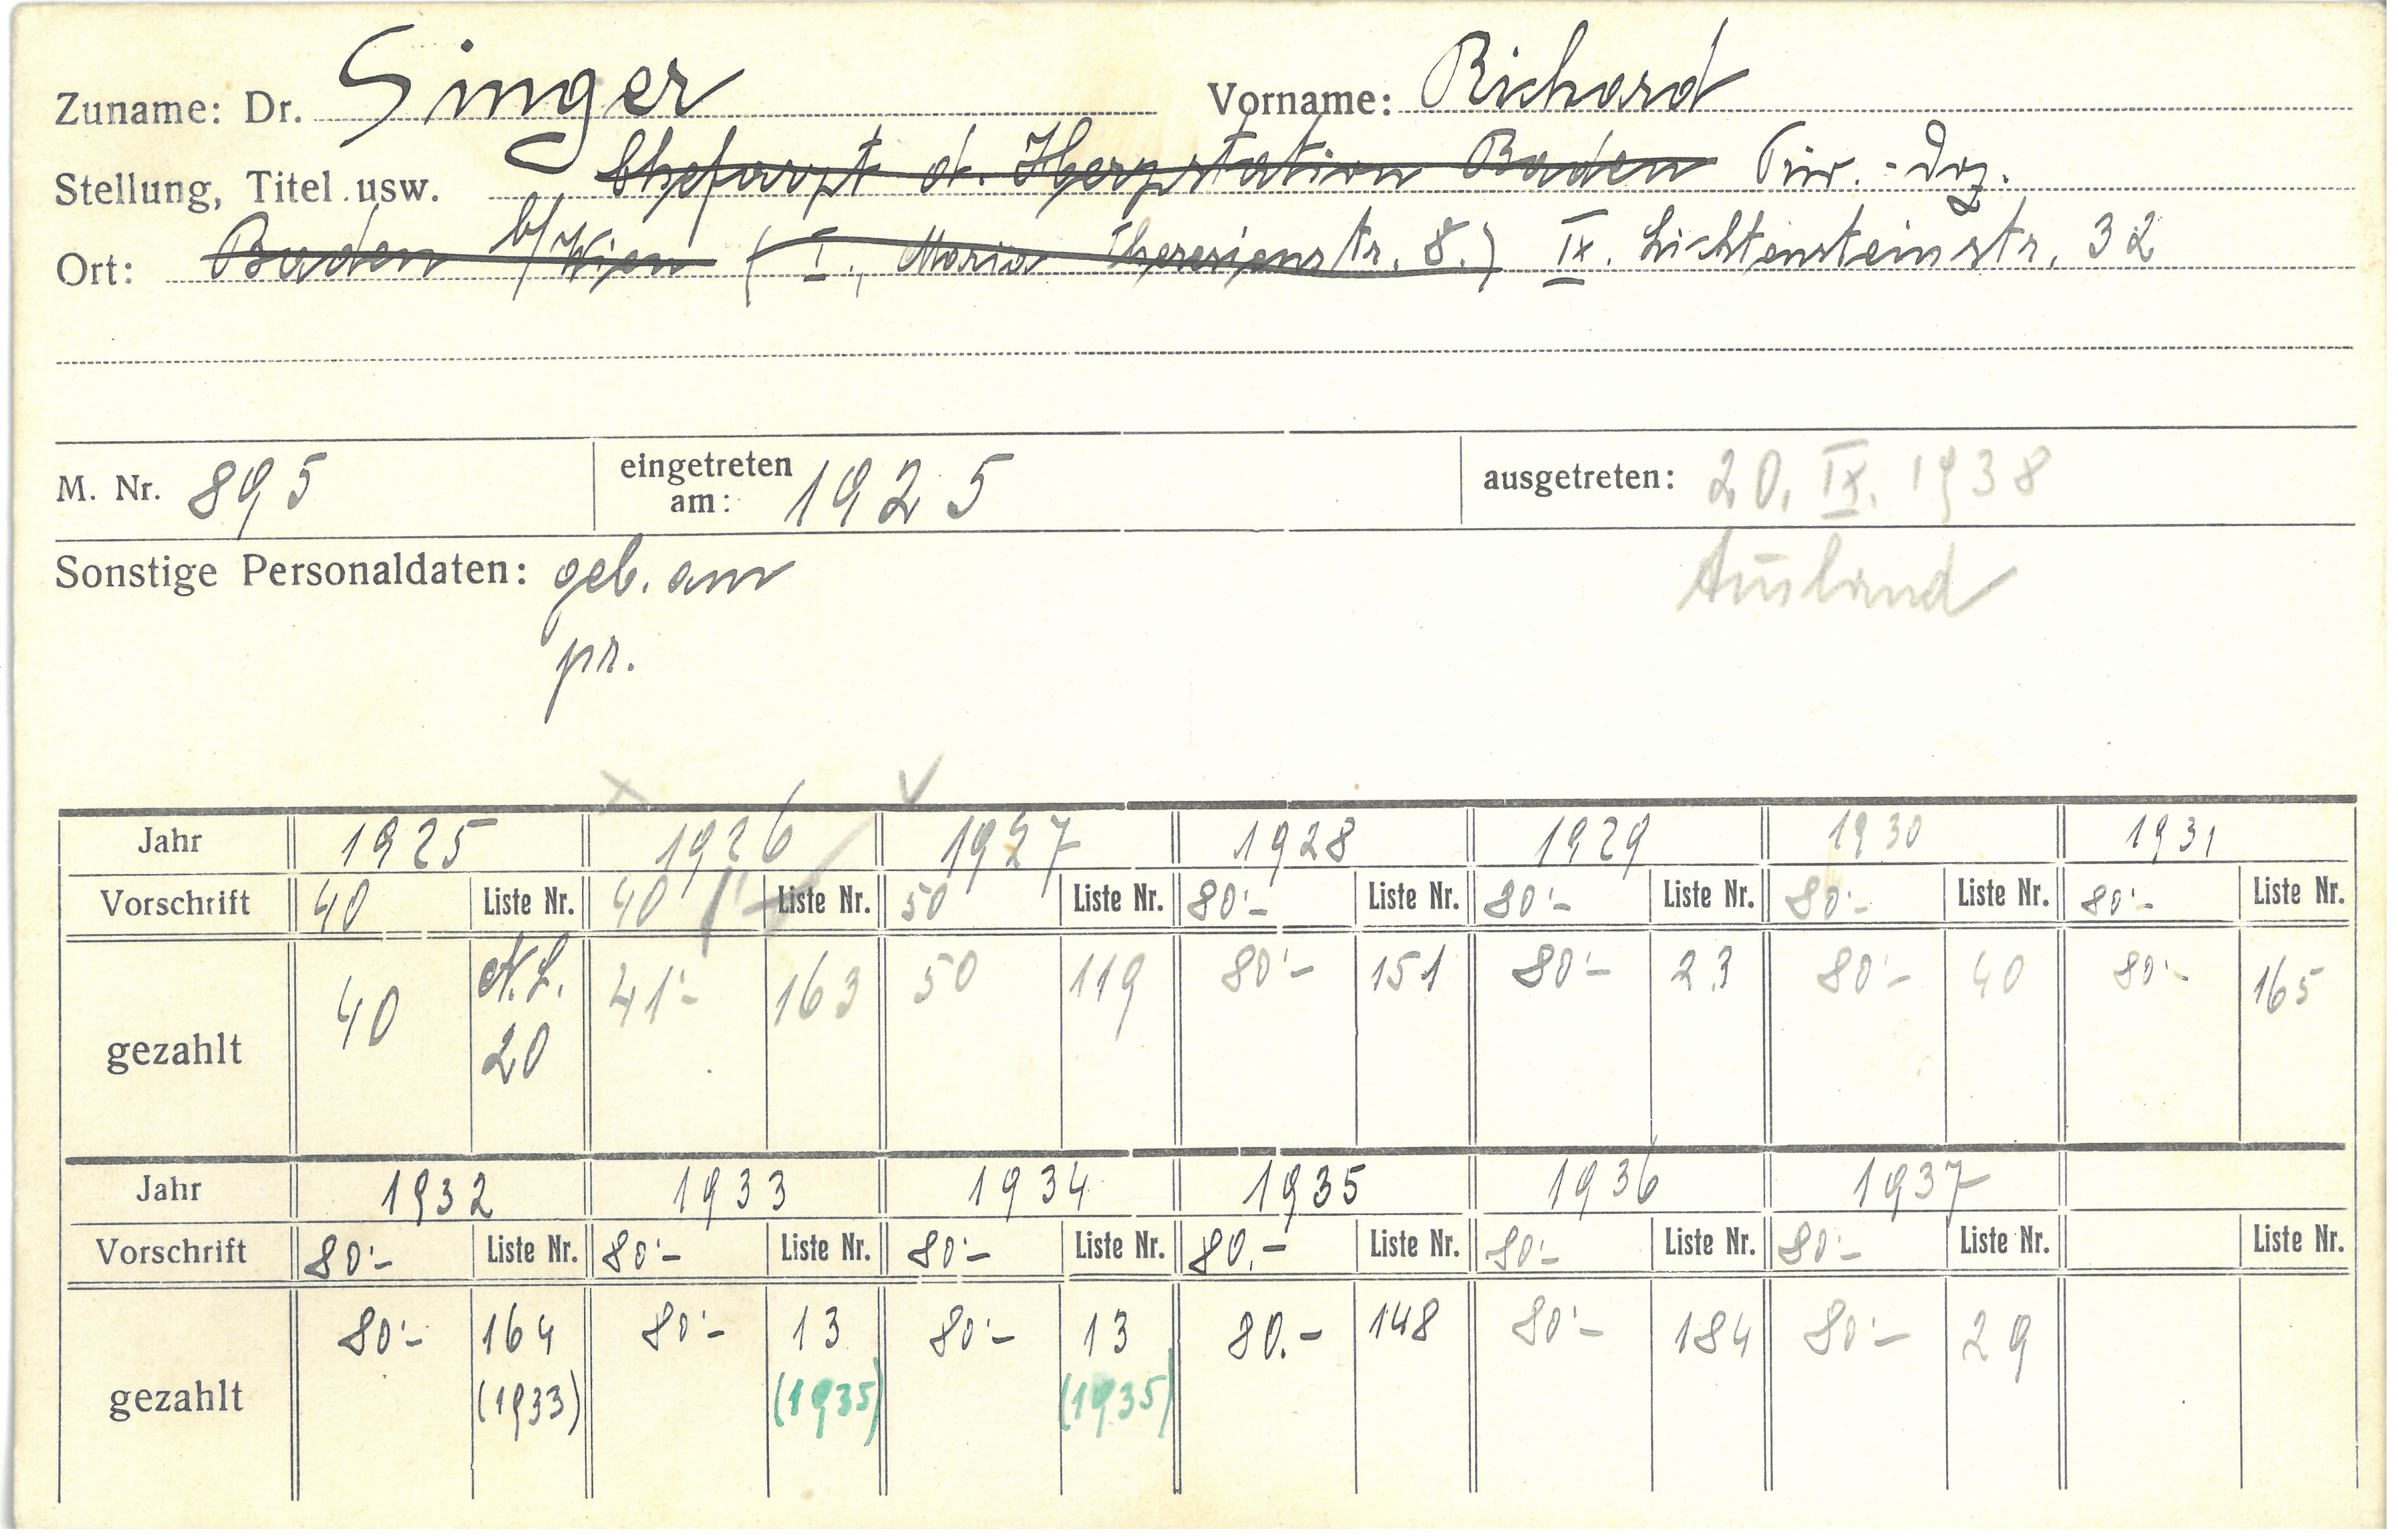 Zuname: Dr. Singer Vorname: Richard
Stellung, Titel usw. Chefarzt d. Herzstation Baden Priv.-Doz.
Ort: Baden b/Wien (I., Maria Theresienstr. 8.) IX. Lichtensteinstr. 32
M. Nr. 895 eingetreten am: 1925 ausgetreten: 20. IX. 1938
Ausland
Sonstige Personaldaten: geb. am
pr.
Jahr 1925 1926 1927 1928 1929 1930 1931
Vorschrift 40 Liste Nr. 40 Liste Nr. 50 Liste Nr. 80'- Liste Nr. 80'- Liste Nr. 80'- Liste Nr. 80'- Liste Nr.
gezahlt 40 N.L. 20 41'- 163 50 119 80'- 151 80'- 23 80'- 40 80'- 165
Jahr 1932 1933 1934 1935 1936 1937
Vorschrift 80'- Liste Nr. 80'- Liste Nr. 80'- Liste Nr. 80.- Liste Nr. 80'- Liste Nr. 80'- Liste Nr. Liste Nr.
gezahlt 80'- 164 80'- 13 80'- 13 80.- 148 80'- 184 80'- 29
(1933) (1935) (1935)